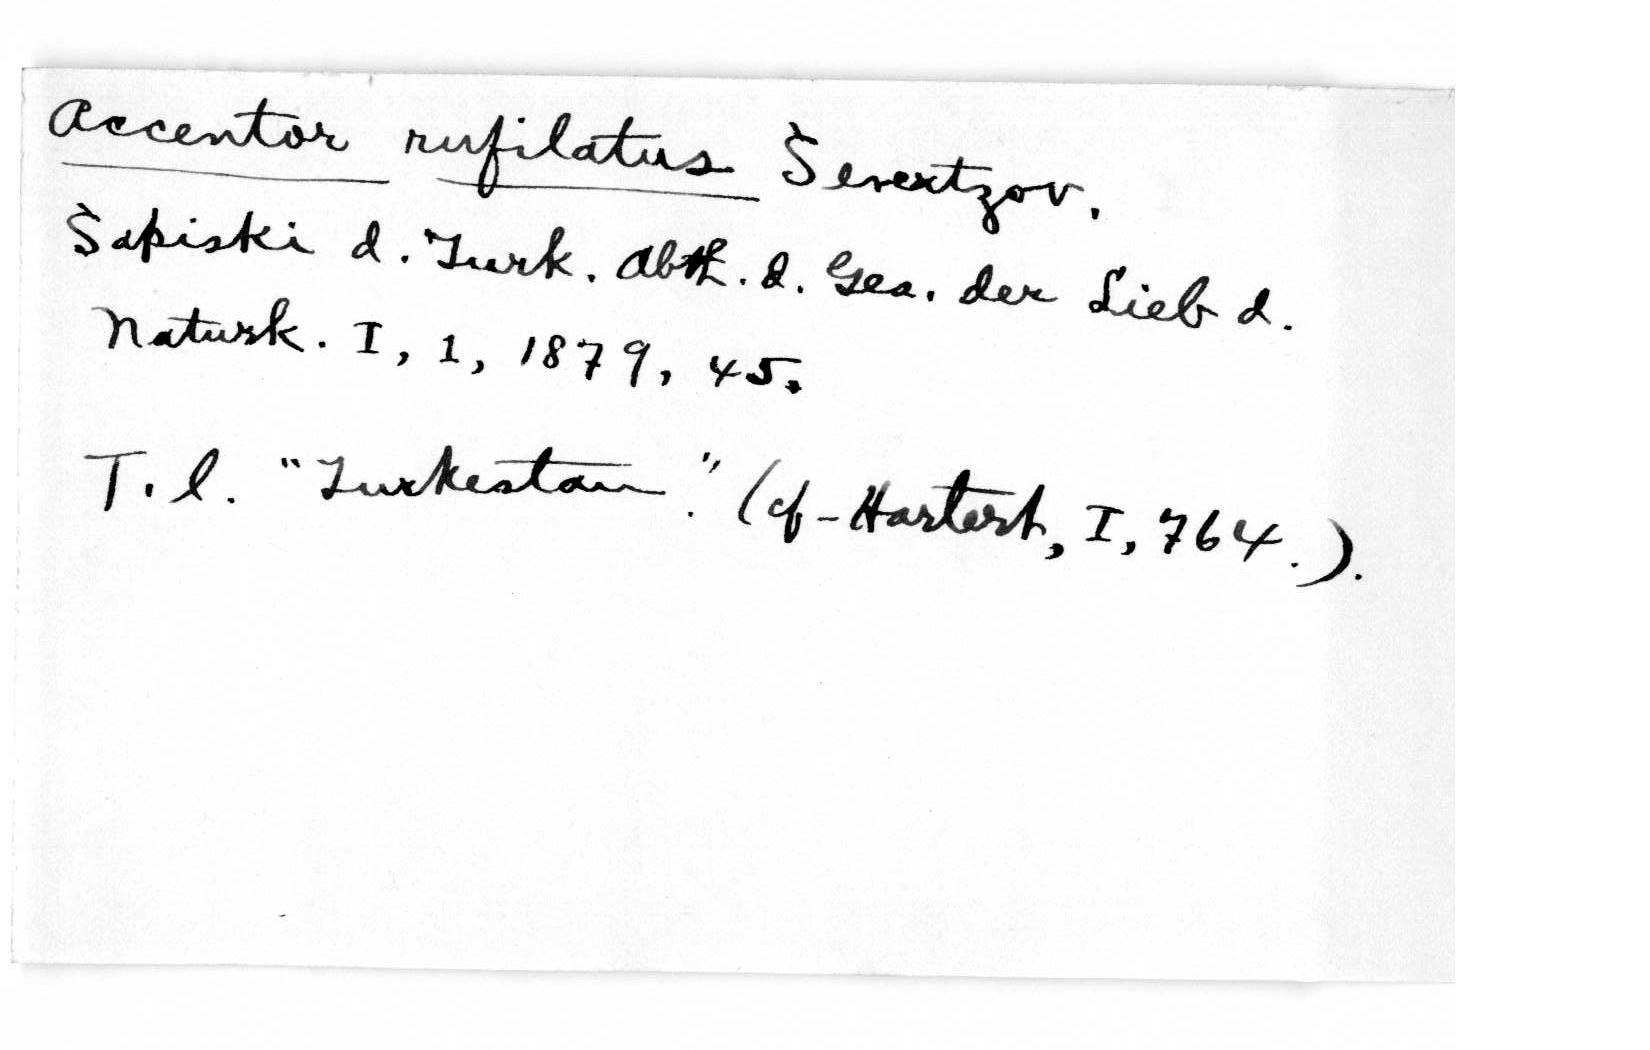 Accentor rufilatus Severtzov.
Sapiski d. Turk. Abth. d. Ges. der Lieb d.
Naturk. I, 1, 1879, 45.
T. l. "Turkestan." (cf - Hartert, I, 764.).